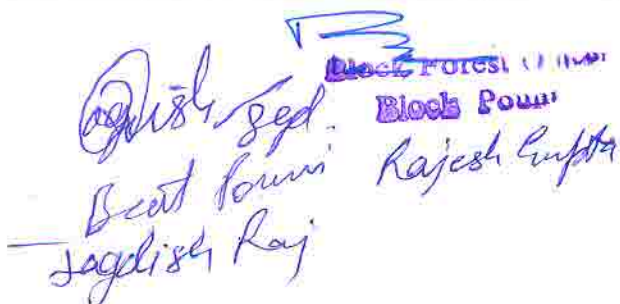 Block Forest Officer
Block Pouni
Jagdish Fgd.
Beat Pouni
Rajesh Gupta
Jagdish Raj